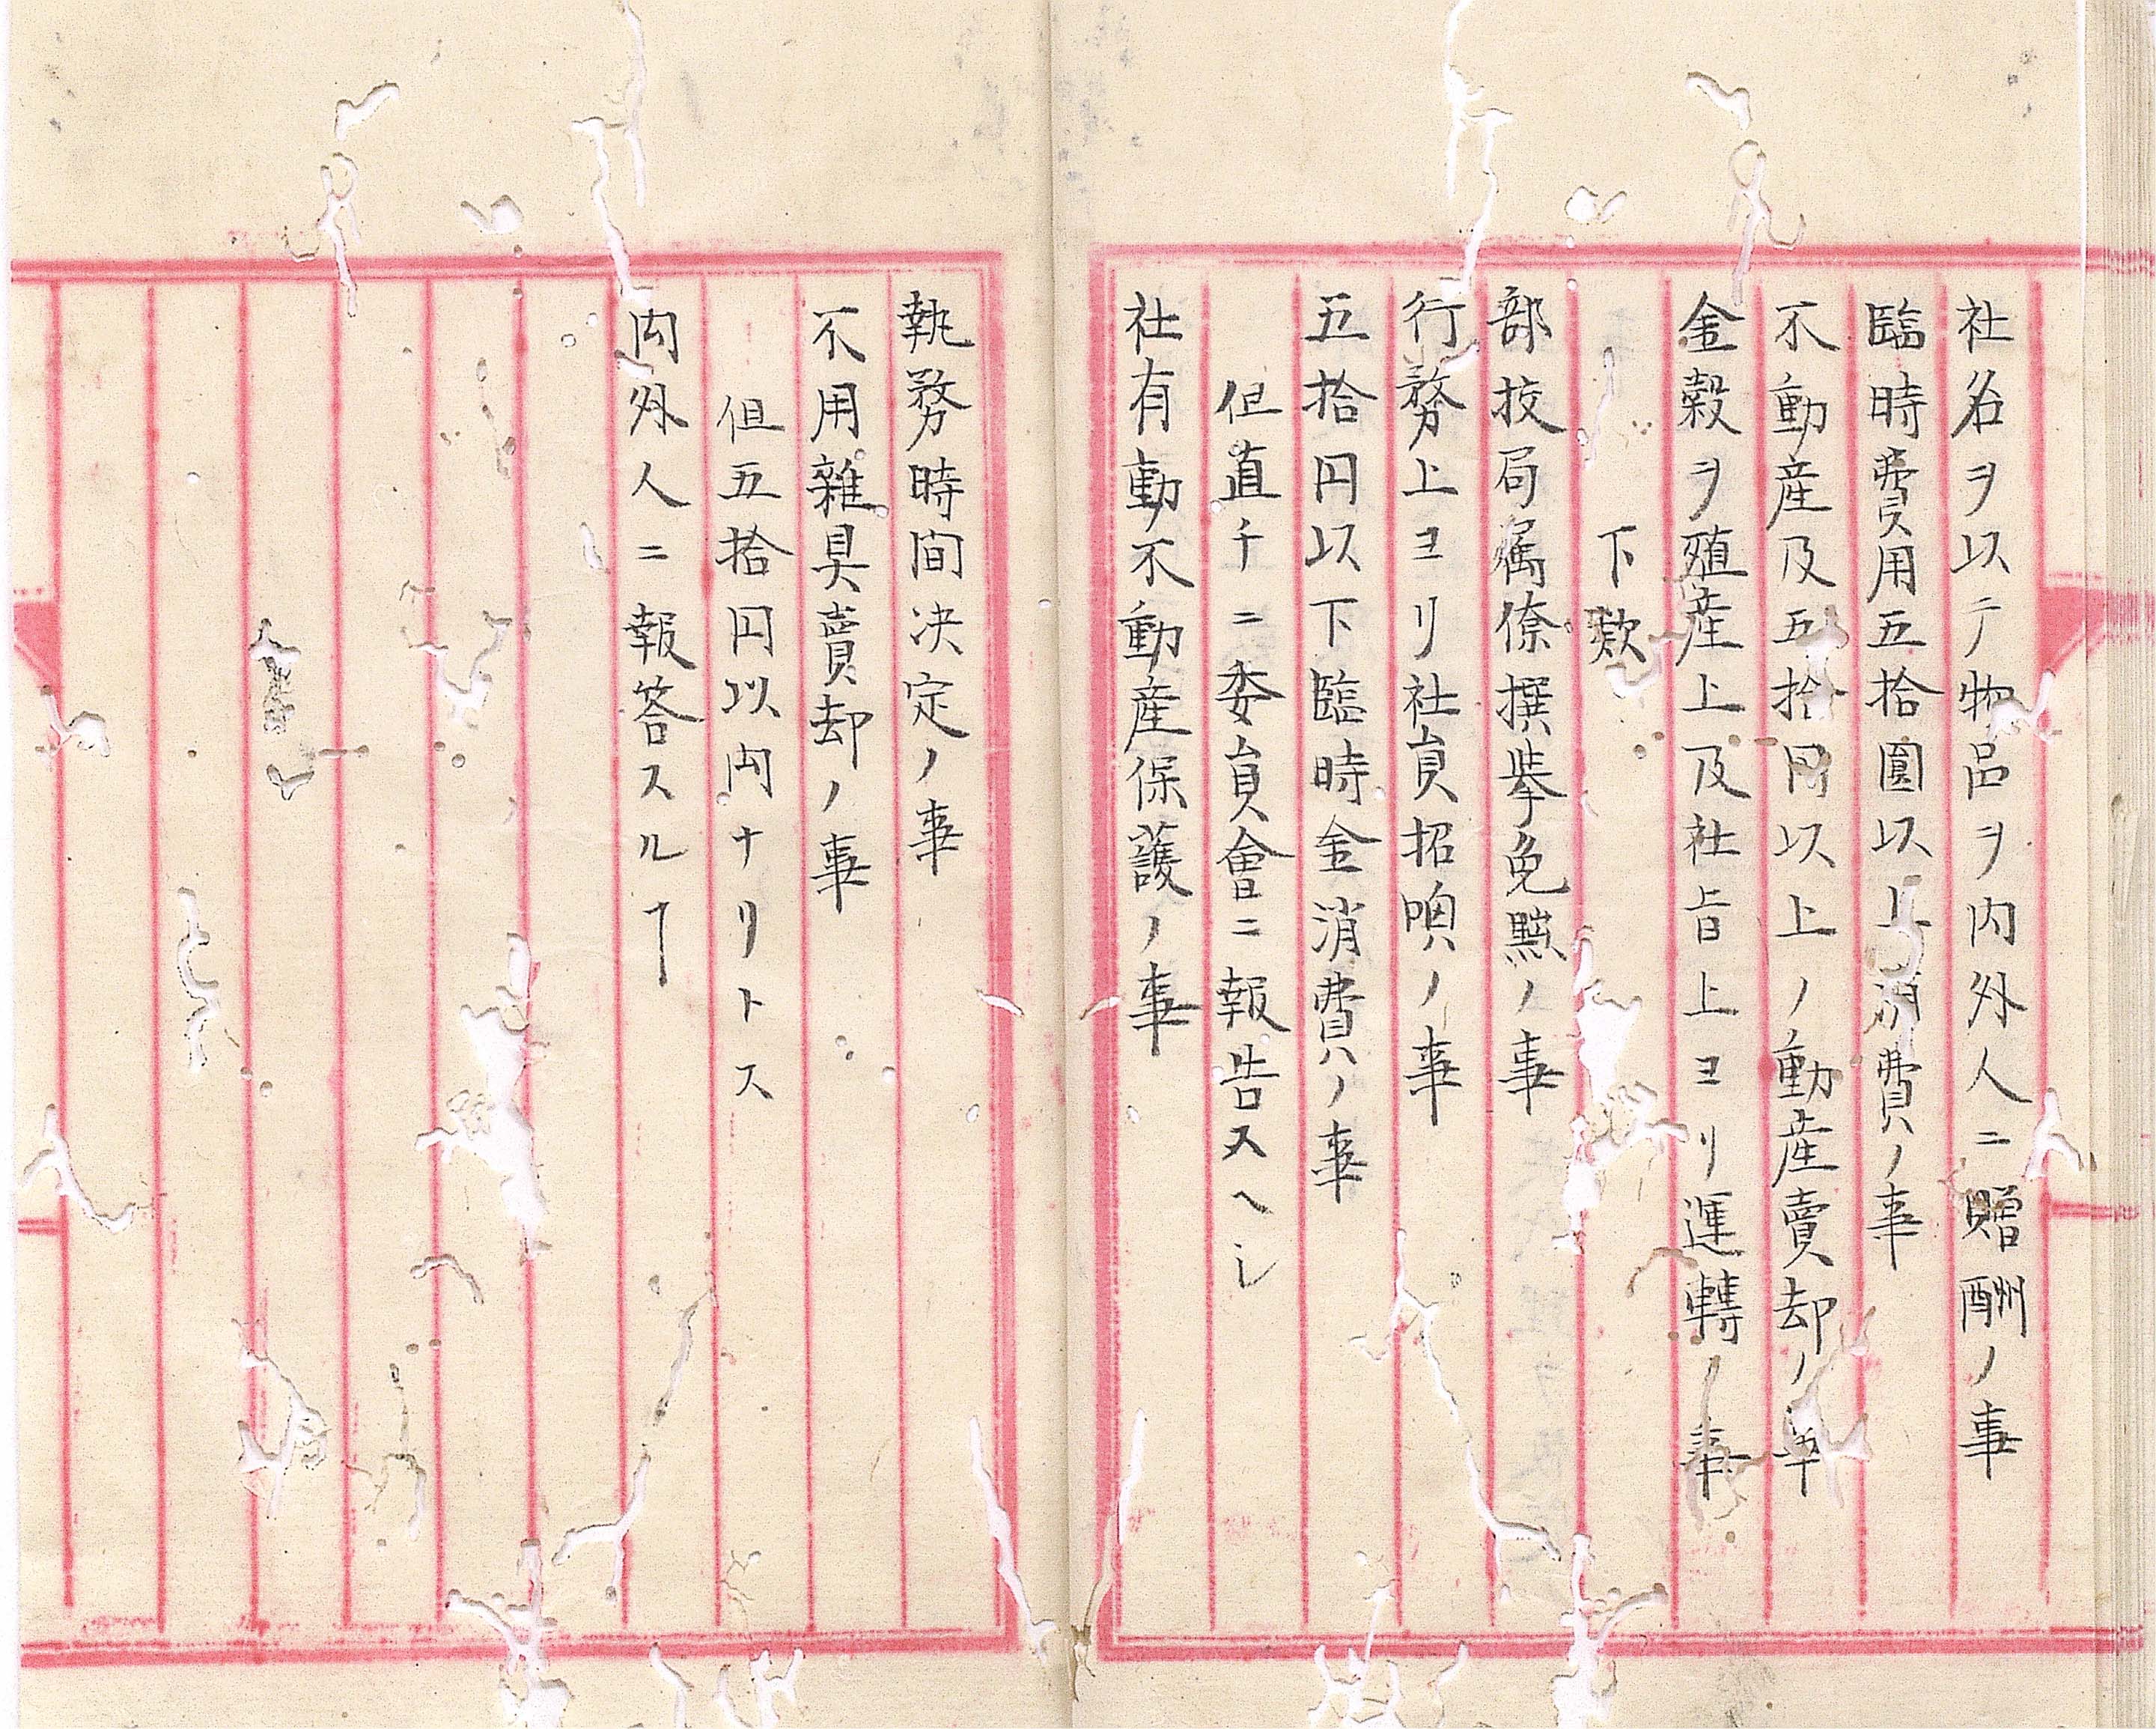 社名ヲ以テ物品ヲ内外人ニ贈酬ノ事
臨時費用五拾圓以上消費ノ事
不動産及五拾円以上ノ動産賣却ノ事
金穀ヲ殖産上及社旨上ヨリ運轉ノ事
下款
部挍局属傺撰挙免黜ノ事
行務上ヨリ社員招喚ノ事
五拾円以下臨時金消費ノ事
但直チニ委員會ニ報告スヘシ
社有動不動産保護ノ事
執務時间决定ノ事
不用雑具賣却ノ事
但五拾円以内ナリトス
内外人ニ報答スルヿ